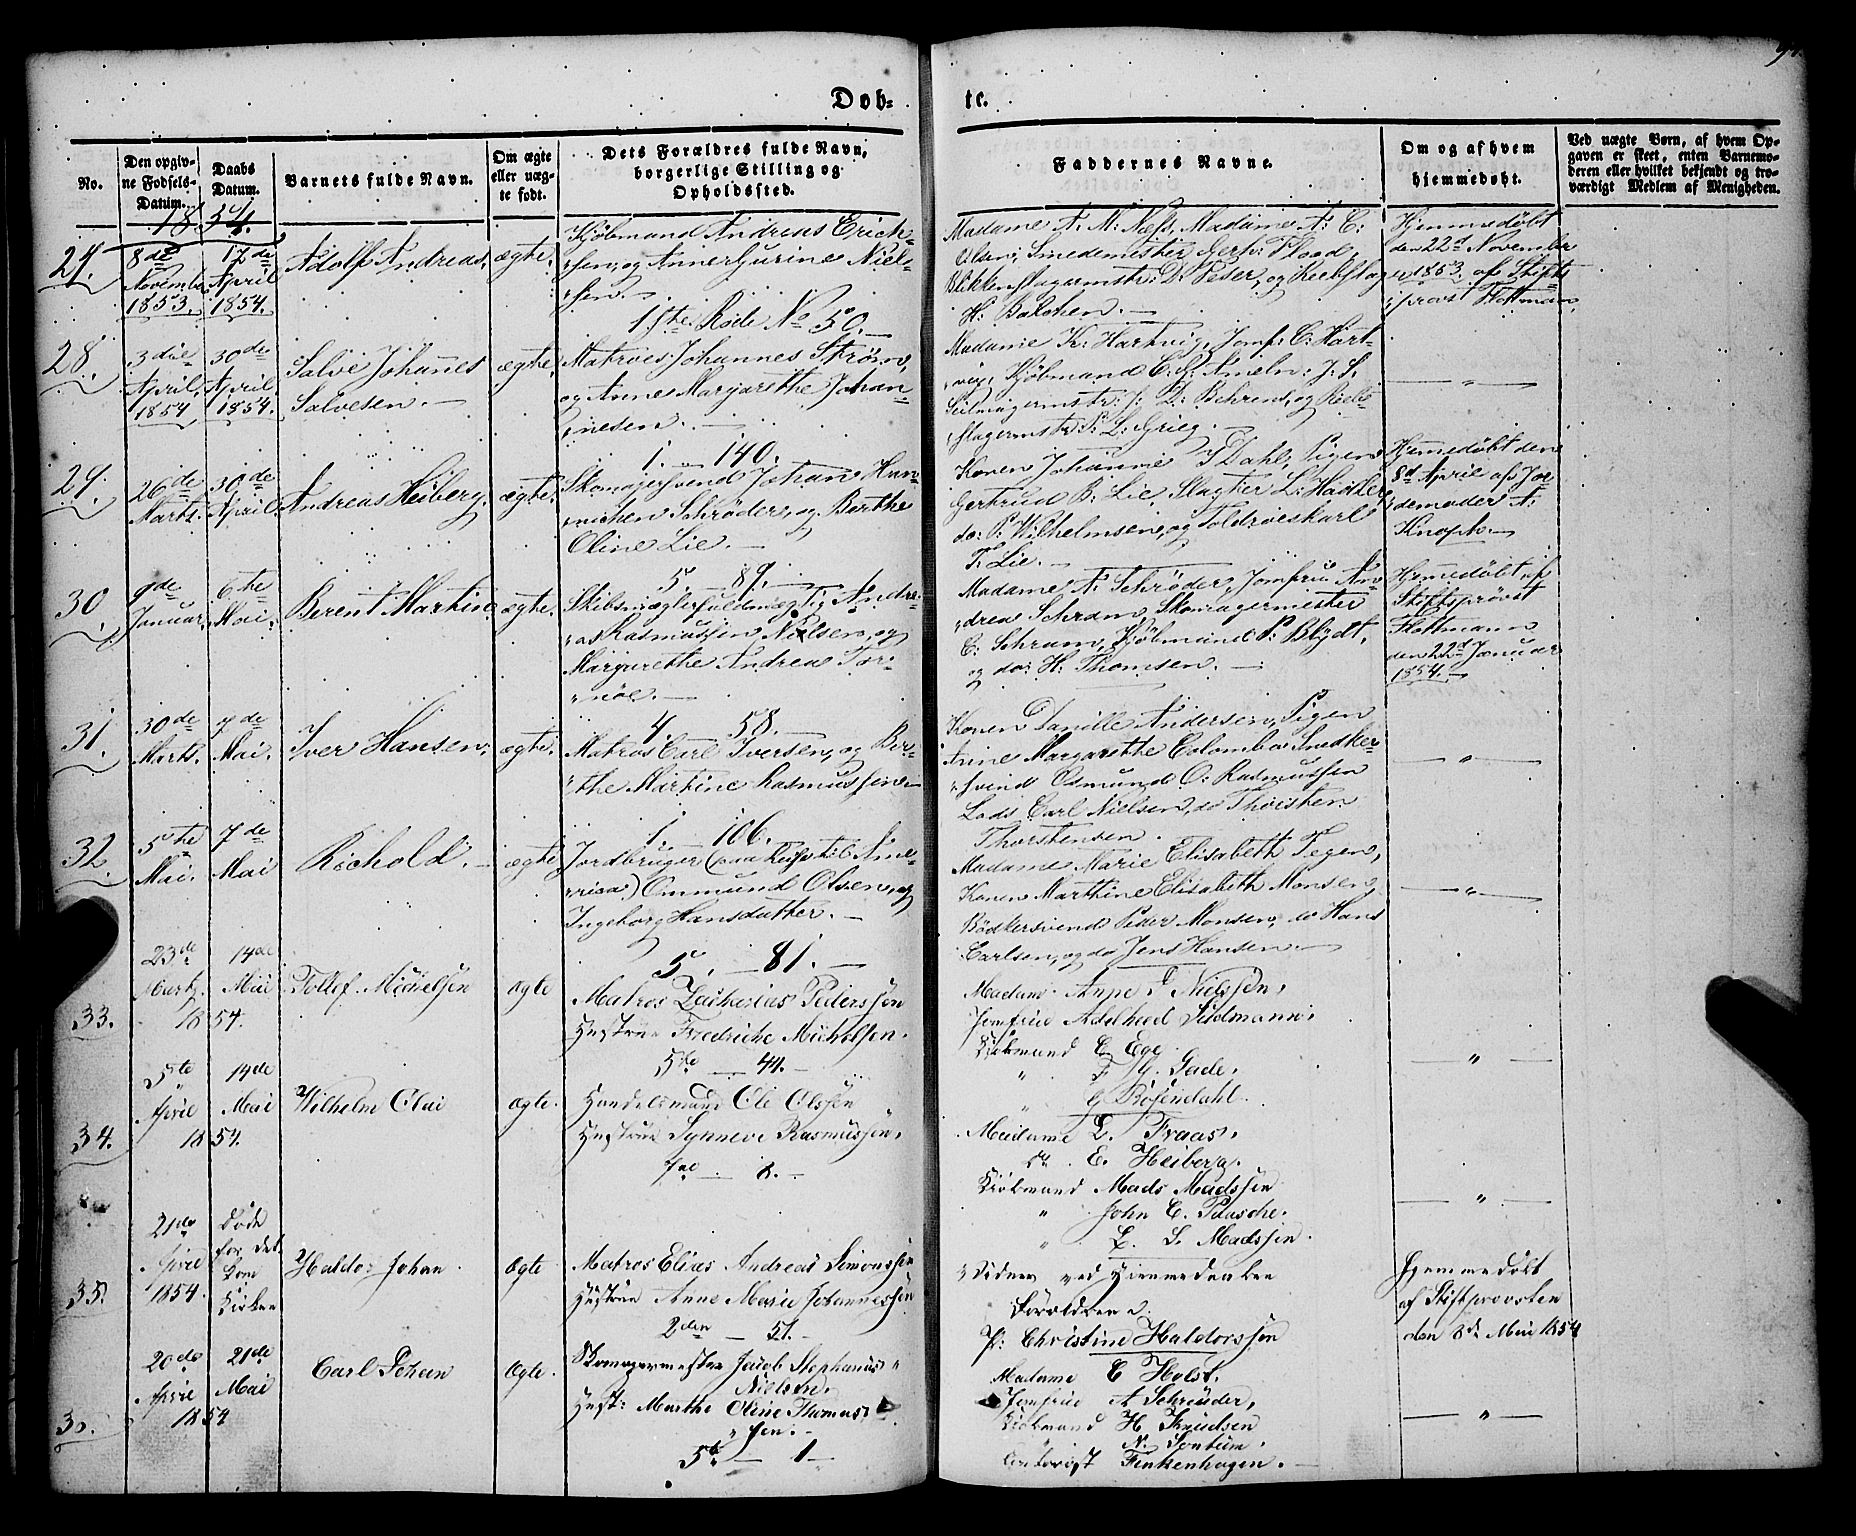 Døb-
te.
No.
Den opgiv-
ne Fødsels-
Datum.
Daabs
Datum.
Barnets fulde Navn.
Om ægte
eller uæg-
te født.
Dets Forældres fulde Navn,
borgerlige Stilling og
Opholdssted.
Faddernes Navne.
Om og af hvem
hjemmedøbt.
Ved uægte Børn, af hvem Op-
gaven er skeet, enten Barnemo-
deren eller hvilket bekjendt og tro-
værdigt Medlem af Menigheden.
1854.
27.
8de
November
1853.
17de
April
1854.
Adolf Andreas.
ægte.
Kjøbmand Andreas Erich-
sen, og Anne Gurine Niel-
sen.
1ste Rode No 50.
Madame A. M. Næss, Madame A. C.
Olsen, Smedemester Gert Flood,
Blikkenslagermstr: D. Peser, og Reebslager
H. Bakchen.
Hjemmedøbt
den 22d November
1853. af Stifts
provst Flottmann
28.
3die
April
1854
30de
April
1854.
Salve Johanes
Salvesen.
ægte.
Matroes Johannes Strøm,
og Anne Margarethe Johan
nesen.
1. 140.
Madame K. Hartvig, Jomf: C. Hart-
vig, Kjøbmand C. A. Ameln: J. S.
Seilmagermstr: J: D: Behrens, og Reeb-
slagermstr: P. L: Grieg.
29.
26de
Marts.
30de
April.
Andreas Heiberg.
ægte.
Skomagersvend Johan Hen
nichen Schrøder, og Berthe
Oline Lie.
5 89.
Konen Johanne Dahl, Pigen
Gertrud B. Lie, Slagter L: Hadler,
do: P. Wilhelmsen, og Toldroeskarl
T. Lie.
Hjemmedøbt den
8d April af Jor
demoder A.
Knoph.
30.
9de
Januar.
6te
Mai.
Berent Martin.
ægte.
Skibsmæglerfuldmægtig Andre-
as Rasmussen Nielsen, og
Margarethe Andrea Tor-
nöe.
4 58.
Madame A. Schrøder, Jomfru An-
drea Schram, Skomagermester
C. Schram, Kjøbmand P. Blydt,
og do: H. Thomsen.
Hjemmedøbt af
Stiftsprovst
Flottmann
den 22d Januar
1854.
31.
30de
Marts.
7de
Mai.
Iver Hansen.
ægte.
Matros Carl Iversen, og Ber-
the Martine Rasmussen.
1. 106.
Konen Tanille Andersen, Pigen
Anne Margarethe Colombo Snedker-
svend Osmund O. Rasmussen
Lods Carl Nielsen, do Thorsten
Thorstensen.
32.
5te
Mai.
7de
Mai
Richold.
ægte
Jordbruger (paa Reise til Ame-
rica) Ommund Olsen, og
Ingeborg Hansdatter.
5. 81.
Madame Marie Elisabeth Tegen,
Konen Marthine Elisabeth Monsen,
Bødkersvend Peder Monsen, do Hans
Carlsen, og do Jens Hansen.
33.
23de
Marts
14de
Mai
1854.
Tollef Michelsen
ægte
Matros Zacharias Pederssen
Hustrue Fredricke Michelsen.
5te 44.
Madam Anne Nielssen,
Jomfrue Adelheed Sudmann,
Kiøbmand C Ege
" F G. Gade.
" G Rosendahl.
34.
5te
April
14de
Mai
1854.
Wilhelm Olai
ægte.
Handelsmand Ole Olssen
Hustrue Synneve Rasmussen,
7de 8.
Madame L. Fraas,
do. E. Heiberg.
Kiøbmand Mads Madssen
" John E. Paasche.
" L. S. Madssen.
35.
21de
April
1854.
døde
før det
kom
Kirken
Haldor Johan
ægte
Matros Elias Andreas Simonssen
Hustrue Anne Marie Johannessen
2den 51.
3 Vidner ved Hiemmedaaben
Forældrene.
P: Christine Haldorssen
Hjemmedøbt
af Stiftprovsten
den 8de Mai 1854
20de
April
21de
Mai
1854
Carl Johan
ægte.
Skomagermester Jacob Stephanus
Nielsen.
Hust: Marthe Oline Thomas
sen.
5te 1
Madame C Holst.
Jomfrue A Schreuder,
Kiøbmand H Knudsen
N. Sontum.
Finkenhagen.